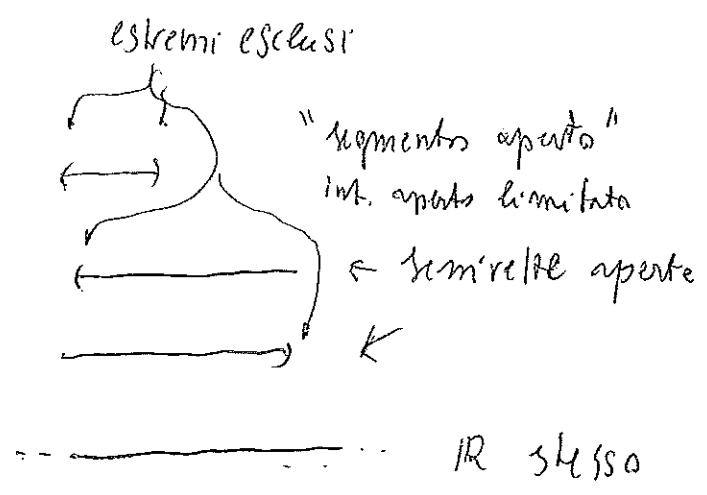 estremi esclusi
"segmento aperto"
int. aperto limitato
← semirette aperte
ℝ stesso